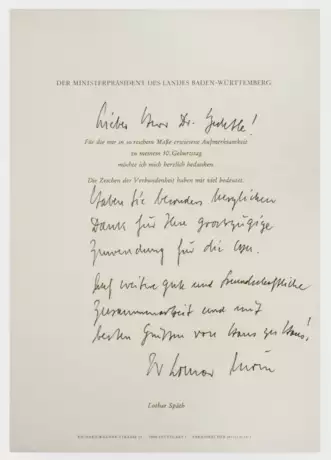 DER MINISTERPRÄSIDENT DES LANDES BADEN-WÜRTTEMBERG
Lieber Herr Dr.
Für die mir in so reichem Maße erwiesene Aufmerksamkeit
zu meinem 50. Geburtstag
möchte ich mich herzlich bedanken.
Die Zeichen der Verbundenheit haben mir viel bedeutet.
Haben Sie besonders herzlichen
Dank für Ihre großzügige
Zuwendung für die
Auf weitere gute und freundschaftliche
Zusammenarbeit und mit
besten Grüßen von Haus zu Haus!
Ihr Lothar Späth
Lothar Späth